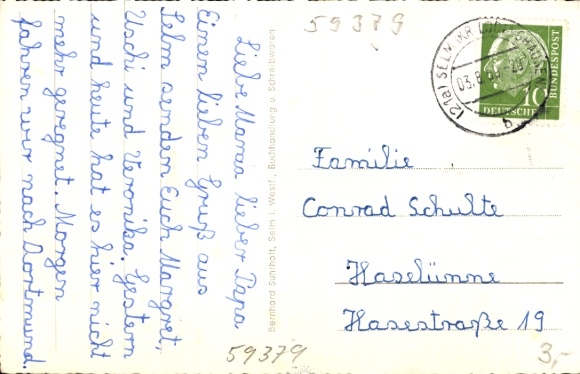 Liebe Mama lieber Papa
Einen lieben Gruß aus
Selm senden Euch Margret,
Uschi und Veronika. Gestern
und heute hat es hier nicht
mehr geregnet. Morgen
fahren wir nach Dortmund.
Bernhard Suhrholt, Selm i. Westf., Buchhandlung u. Schreibwaren
59379
(21a) SELM (KR
03.8.
b
10
DEUTSCHE
BUNDESPOST
Familie
Conrad Schulte
Haselünne
Hasestraße 19
59379
3,-